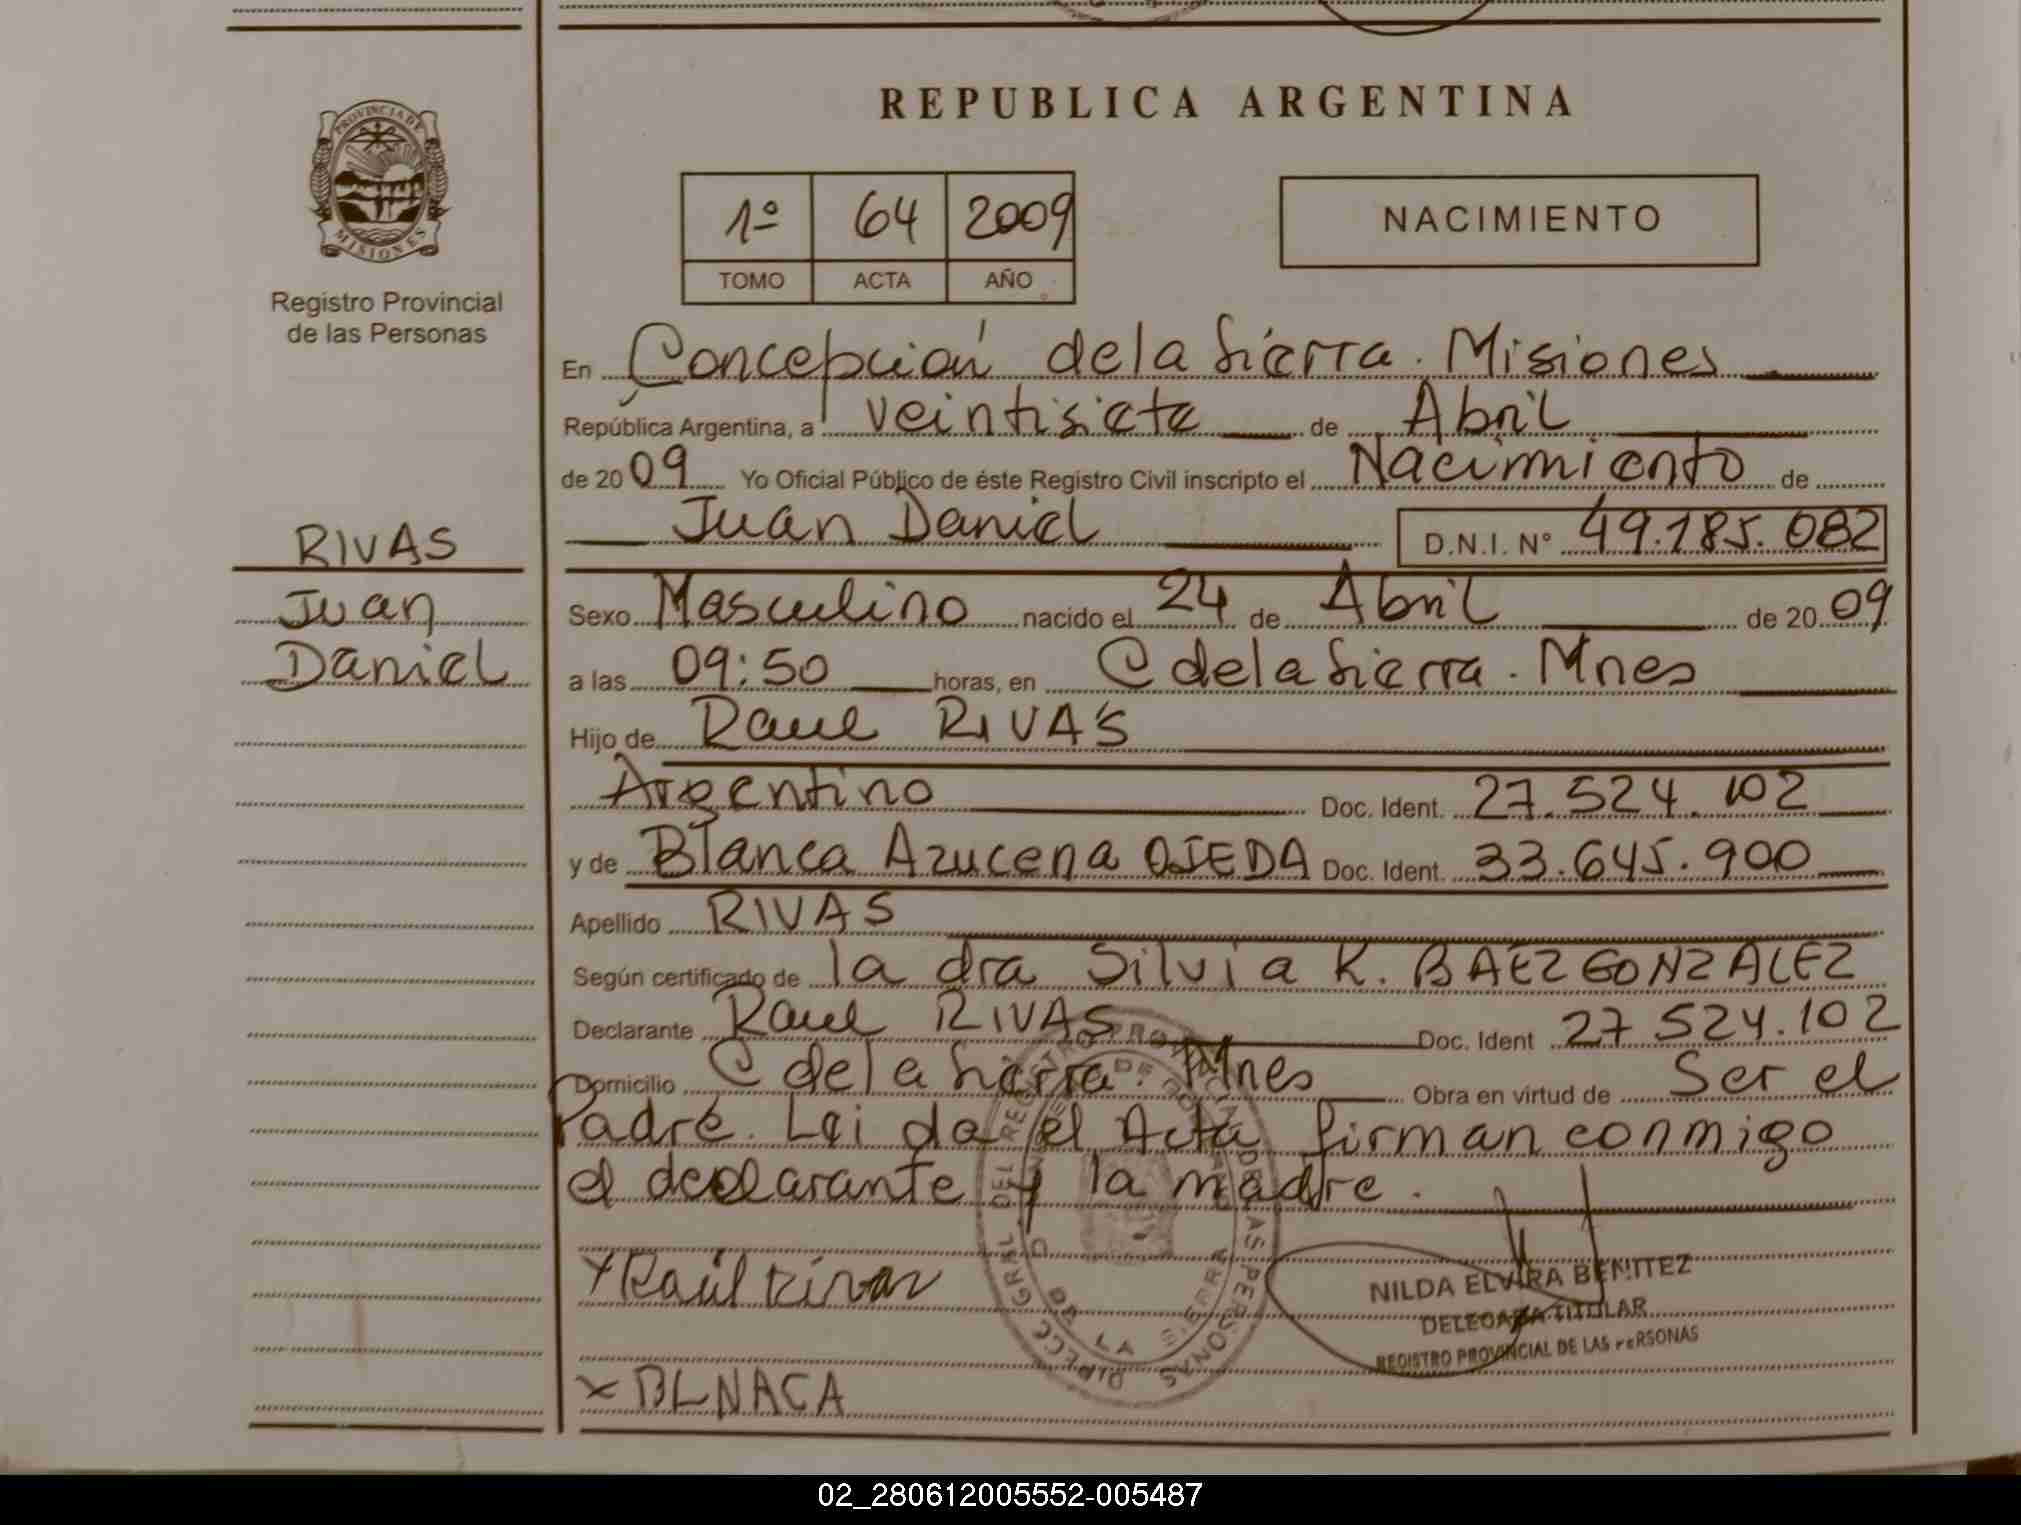 REPUBLICA ARGENTINA
PROVINCIA DE
MISIONES
Registro Provincial
de las Personas
1º 64 2009
TOMO ACTA AÑO
NACIMIENTO
En Concepción de la Sierra. Misiones
República Argentina, a veintisiete de Abril
de 2009 Yo Oficial Público de éste Registro Civil inscripto el Nacimiento de
Juan Daniel D.N.I. Nº 49.185.082
RIVAS
Juan
Daniel
Sexo Masculino nacido el 24 de Abril de 2009
a las 09:50 horas, en C de la Sierra. Mnes
Hijo de Raul RIVAS
Argentino Doc. Ident. 27.524.102
y de Blanca Azucena OJEDA Doc. Ident. 33.645.900
Apellido RIVAS
Según certificado de la dra Silvia K. BAEZ GONZALEZ
Declarante Raul RIVAS Doc. Ident 27 524.102
Domicilio C de la Sierra. Mnes Obra en virtud de Ser el
Padre. Leida el Acta firman conmigo
el declarante y la madre.
x Raúl Rivas
NILDA ELVIRA BENITEZ
DELEGADA TITULAR
REGISTRO PROVINCIAL DE LAS PERSONAS
x BLNACA
DIRECC GRAL DEL REGISTRO PROVINCIAL DE LAS PERSONAS
DE LA SIERRA
02_280612005552-005487